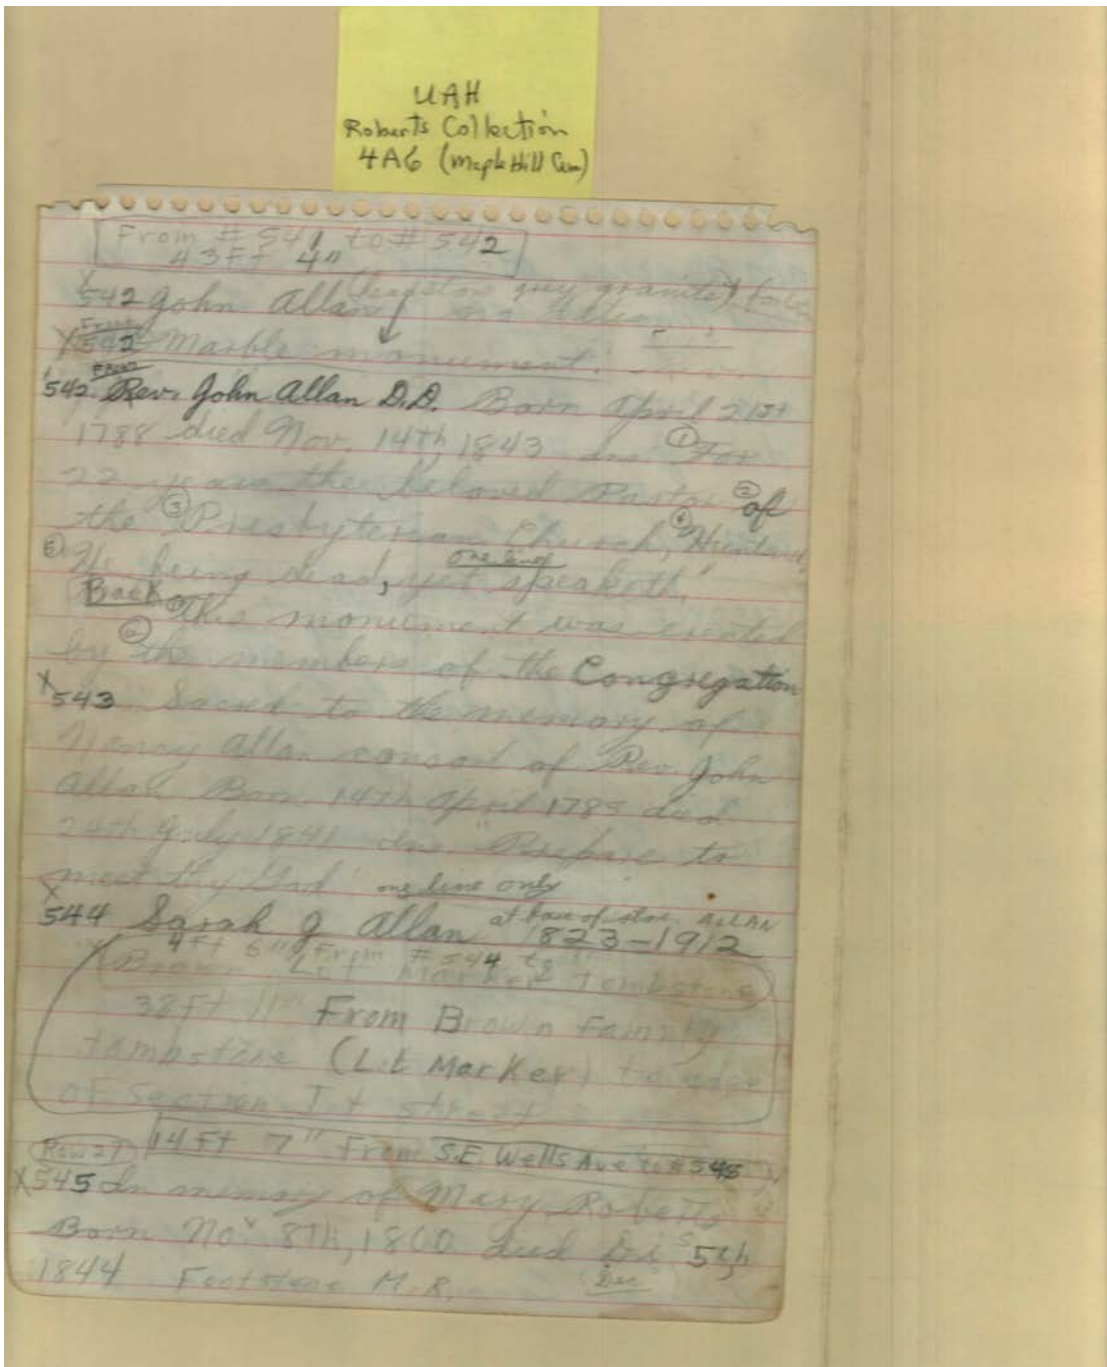 UAH
Roberts Collection
4A6 (Maple Hill Cem)
From # 541 to # 542
43Ft 4"
X
542 John Allan (tombstone grey granite)
Front
X 542 Marble monument.
Front
542. Rev. John Allan D.D. Born April 21st
1788 died Nov. 14th 1843 Ins. ① "For
22 years the beloved Pastor ② of
the ③ Presbyterian Church, ④
⑤ He being dead, yet speaketh."
one line
Back ① This monument was erected
by ② the members of the Congregation
X
543 Sacred to the memory of
Nancy Allan consort of Rev. John
Allan Born 14th April 1785 died
24th July 1841 Ins. "Prepare to
meet thy God" one line only
X
544 Sarah J Allan at base of stone ALLAN
1823-1912
4Ft 6" From #544 to
Brown Lot Marker Tombstone
38Ft 11" From Brown Family
tombstone (Lot Marker) to edge
of Section 1st street
Row 27 14Ft 7" From S.E. Wells Ave to #545
X545 In memory of Mary Roberts
Born Nov 8th, 1800 died 5th
1844 Footstone M.R. (Dec)